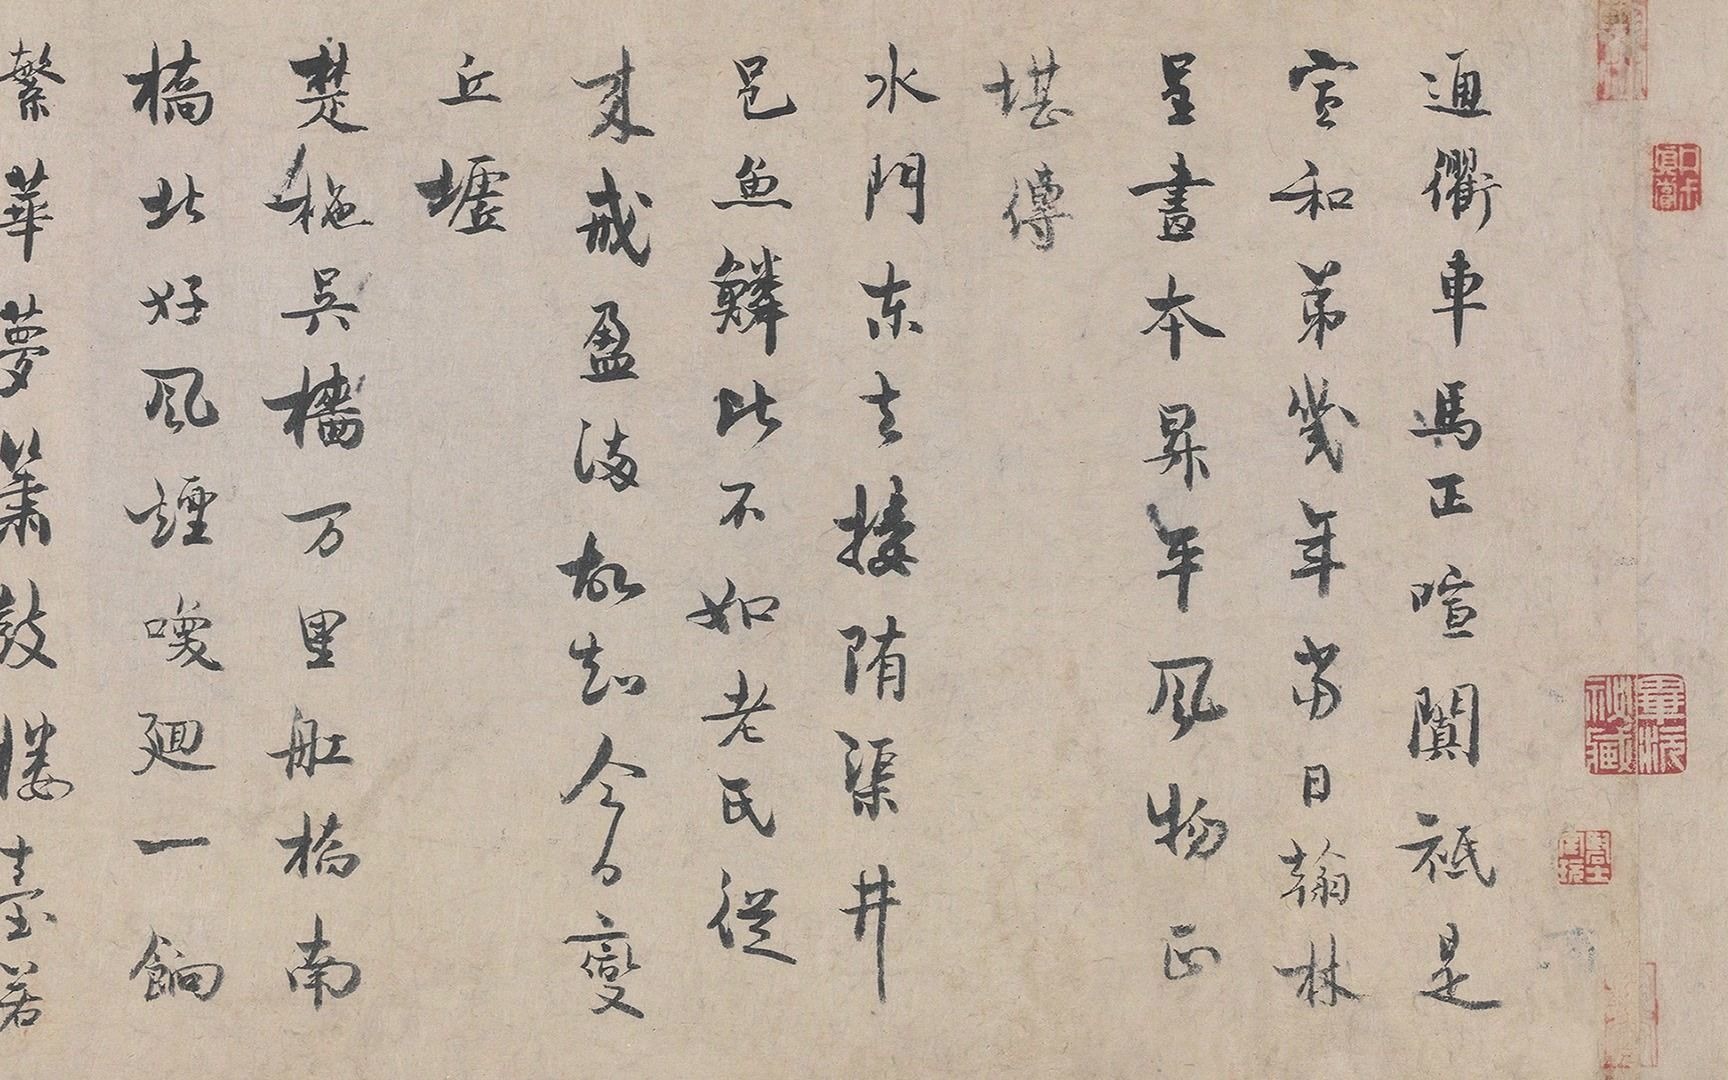 通衢車馬正喧闐祗是
宣和苐幾年當日翰林
呈畫本昇平風物正
堪傳
水門東去接隋渠井
邑魚鱗比不如老氏從
来戒盈滿故知今日變
丘墟
楚柂吳檣万里舡橋南
橋北好風煙喚廻一餉
繁華夢簫鼓樓臺若